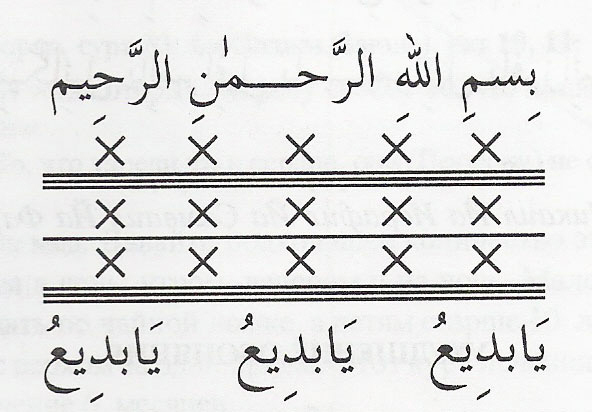 بِسمِ اللهِ الرَّحـــمٰنِ الرَّحِيم
× × × × ×
× × × × ×
× × × × ×
يابدِيعُ يابدِيعُ يابدِيعُ